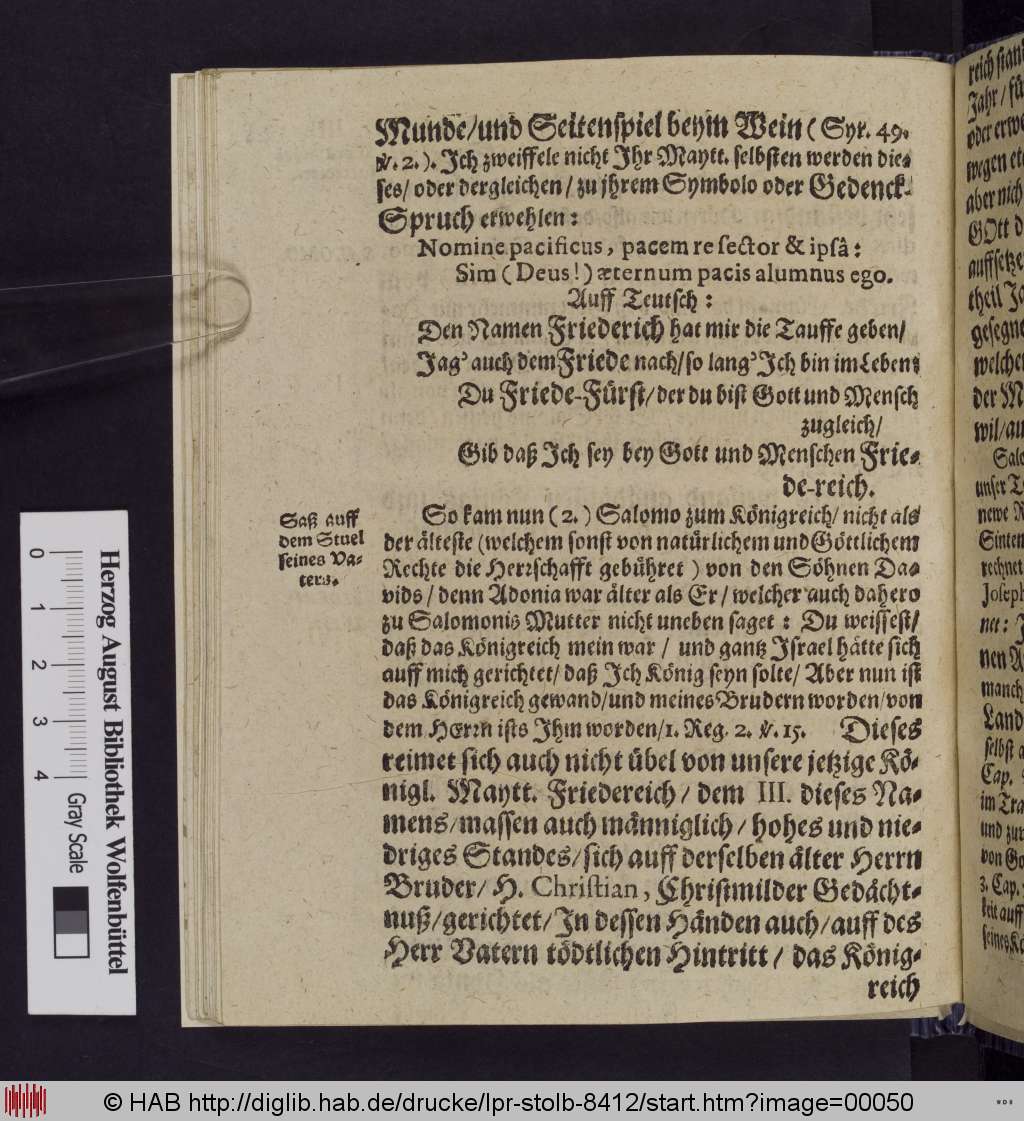 Munde/und Seitenspiel beym Wein (Syr. 49.
℣. 2.). Jch zweiffele nicht Jhr Maytt. selbsten werden die-
ses/ oder dergleichen / zu jhrem Symbolo oder Gedenck-
Spruch erwehlen:
Nomine pacificus, pacem re sector & ipsâ:
Sim (Deus!) æternum pacis alumnus ego.
Auff Teutsch:
Den Namen Friederich hat mir die Tauffe geben/
Jag' auch dem Friede nach/so lang' Jch bin im Leben:
Du Friede-Fürst/ der du bist Gott und Mensch
zugleich/
Gib daß Jch sey bey Gott und Menschen Frie-
de-reich.
Saß auff
dem Stuel
seines Va-
ters.
So kam nun (2.) Salomo zum Königreich/ nicht als
der älteste (welchem sonst von natürlichem und Göttlichem
Rechte die Herrschafft gebühret) von den Söhnen Da-
vids / denn Adonia war älter als Er / welcher auch dahero
zu Salomonis Mutter nicht uneben saget: Du weissest/
daß das Königreich mein war / und gantz Jsrael hätte sich
auff mich gerichtet/ daß Jch König seyn solte/ Aber nun ist
das Königreich gewand/und meines Brudern worden/von
dem HErrn ists Jhm worden/1. Reg. 2. ℣. 15. Dieses
reimet sich auch nicht übel von unsere jetzige Kö-
nigl. Maytt. Friedereich / dem III. dieses Na-
mens/massen auch männiglich / hohes und nie-
driges Standes/sich auff derselben älter Herrn
Bruder/ H. Christian, Christmilder Gedächt-
nuß/gerichtet/ Jn dessen Händen auch/auff des
Herr Vatern tödtlichen Hintritt / das König-
reich
reich
Jahr/
oder
wegen
aber nich
GOtt
auffsetze
theil
gesegne
welche
der
wil/
unser
newe
Sinten
rechnet
Joseph
net:
manch
Land
selbst
Cap.
im
und
von
3. Cap.
auff
0 1 2 3 4
Herzog August Bibliothek Wolfenbüttel
Gray Scale
© HAB http://diglib.hab.de/drucke/lpr-stolb-8412/start.htm?image=00050
WDB